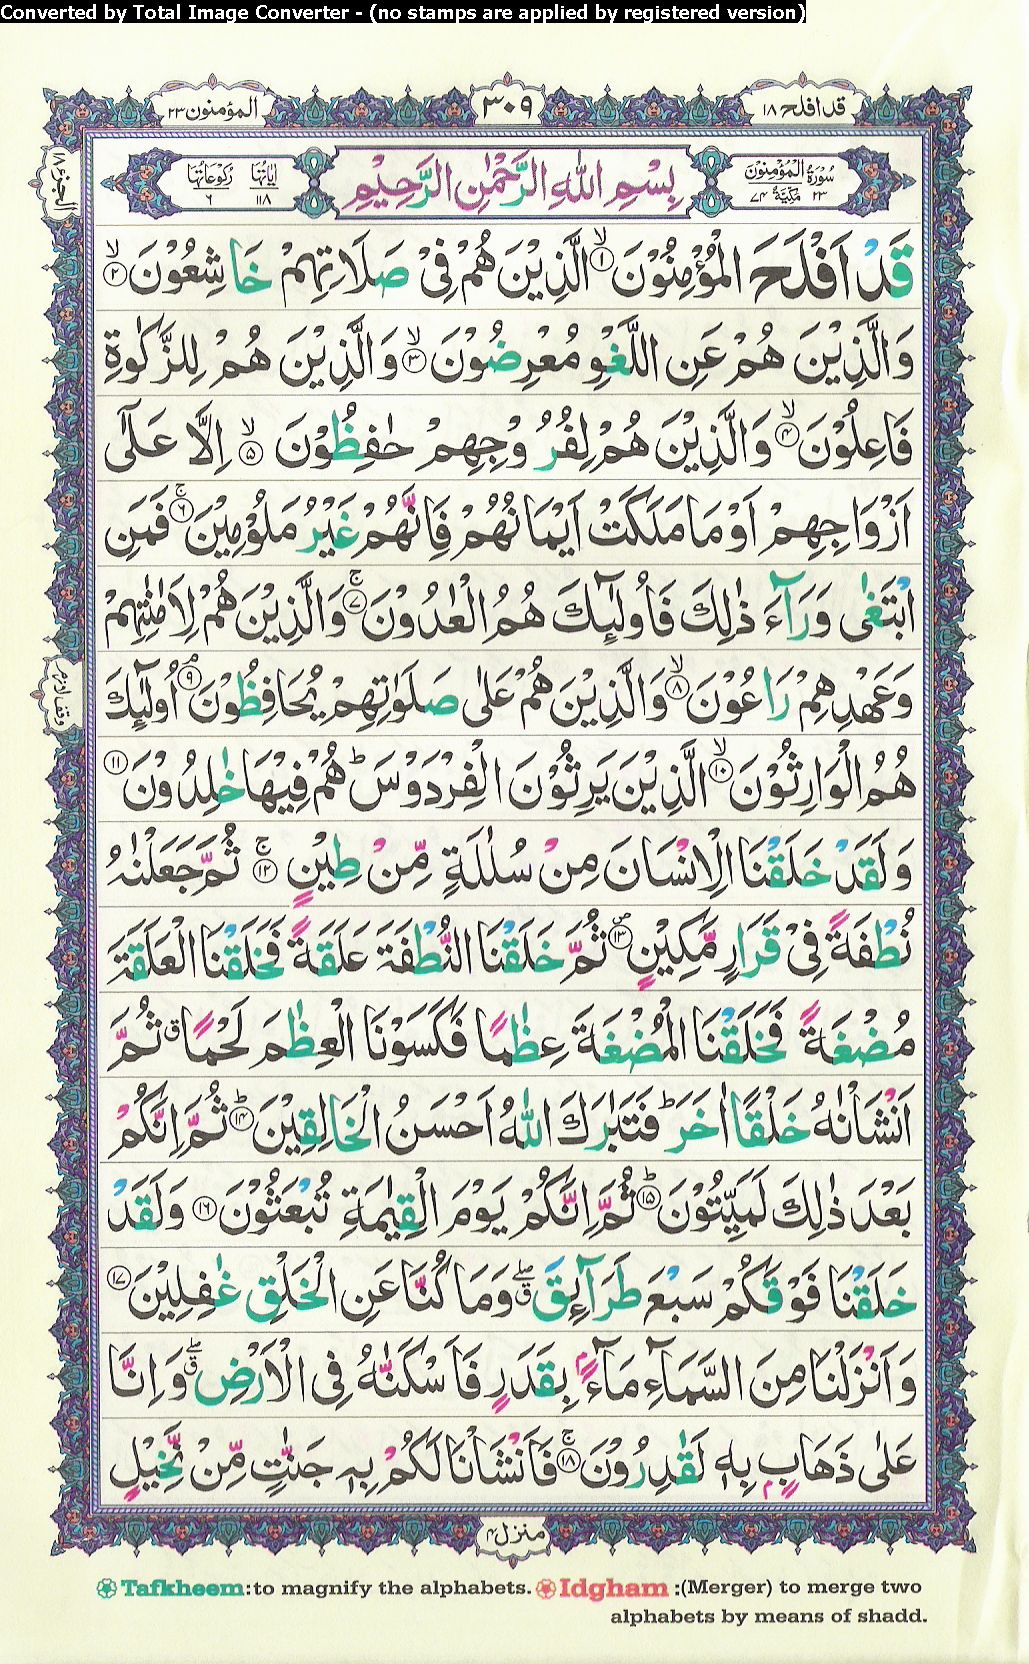 Converted by Total Image Converter - (no stamps are applied by registered version)
قد افلح ۱۸
۳۰۹
المؤمنون ۲۳
سُوْرَةُ الْمُؤْمِنُوْنَ
۲۳ مَكِّيَّةٌ ۷۴
بِسْمِ اللّٰهِ الرَّحْمٰنِ الرَّحِيْمِ
اٰيَاتُهَا ۱۱۸
رُكُوْعَاتُهَا ۶
الجزء ۱۸
قَدْ اَفْلَحَ الْمُؤْمِنُوْنَ ۙ﴿۱﴾ الَّذِيْنَ هُمْ فِيْ صَلَاتِهِمْ خَاشِعُوْنَ ۙ﴿۲﴾
وَالَّذِيْنَ هُمْ عَنِ اللَّغْوِ مُعْرِضُوْنَ ۙ﴿۳﴾ وَالَّذِيْنَ هُمْ لِلزَّكٰوةِ
فَاعِلُوْنَ ۙ﴿۴﴾ وَالَّذِيْنَ هُمْ لِفُرُوْجِهِمْ حٰفِظُوْنَ ۙ﴿۵﴾ اِلَّا عَلٰٓى
اَزْوَاجِهِمْ اَوْ مَا مَلَكَتْ اَيْمَانُهُمْ فَاِنَّهُمْ غَيْرُ مَلُوْمِيْنَ ۚ﴿۶﴾ فَمَنِ
ابْتَغٰى وَرَآءَ ذٰلِكَ فَاُولٰٓئِكَ هُمُ الْعٰدُوْنَ ۚ﴿۷﴾ وَالَّذِيْنَ هُمْ لِاَمٰنٰتِهِمْ
وَعَهْدِهِمْ رَاعُوْنَ ۙ﴿۸﴾ وَالَّذِيْنَ هُمْ عَلٰى صَلَوٰتِهِمْ يُحَافِظُوْنَ ۘ﴿۹﴾ اُولٰٓئِكَ
هُمُ الْوَارِثُوْنَ ۙ﴿۱۰﴾ الَّذِيْنَ يَرِثُوْنَ الْفِرْدَوْسَ ؕ هُمْ فِيْهَا خٰلِدُوْنَ ﴿۱۱﴾
وَلَقَدْ خَلَقْنَا الْاِنْسَانَ مِنْ سُلٰلَةٍ مِّنْ طِيْنٍ ۚ﴿۱۲﴾ ثُمَّ جَعَلْنٰهُ
نُطْفَةً فِيْ قَرَارٍ مَّكِيْنٍ ۖ﴿۱۳﴾ ثُمَّ خَلَقْنَا النُّطْفَةَ عَلَقَةً فَخَلَقْنَا الْعَلَقَةَ
مُضْغَةً فَخَلَقْنَا الْمُضْغَةَ عِظٰمًا فَكَسَوْنَا الْعِظٰمَ لَحْمًا ق ثُمَّ
اَنْشَاْنٰهُ خَلْقًا اٰخَرَ ؕ فَتَبٰرَكَ اللّٰهُ اَحْسَنُ الْخَالِقِيْنَ ؕ﴿۱۴﴾ ثُمَّ اِنَّكُمْ
بَعْدَ ذٰلِكَ لَمَيِّتُوْنَ ؕ﴿۱۵﴾ ثُمَّ اِنَّكُمْ يَوْمَ الْقِيٰمَةِ تُبْعَثُوْنَ ﴿۱۶﴾ وَلَقَدْ
خَلَقْنَا فَوْقَكُمْ سَبْعَ طَرَآئِقَ ۖق وَمَا كُنَّا عَنِ الْخَلْقِ غٰفِلِيْنَ ﴿۱۷﴾
وَاَنْزَلْنَا مِنَ السَّمَآءِ مَآءًۢ بِقَدَرٍ فَاَسْكَنّٰهُ فِي الْاَرْضِ ۖق وَاِنَّا
عَلٰى ذَهَابٍۢ بِهٖ لَقٰدِرُوْنَ ۚ﴿۱۸﴾ فَاَنْشَاْنَا لَكُمْ بِهٖ جَنّٰتٍ مِّنْ نَّخِيْلٍ
وقف لازم
منزل ۴
Tafkheem:to magnify the alphabets. Idgham :(Merger) to merge two
alphabets by means of shadd.